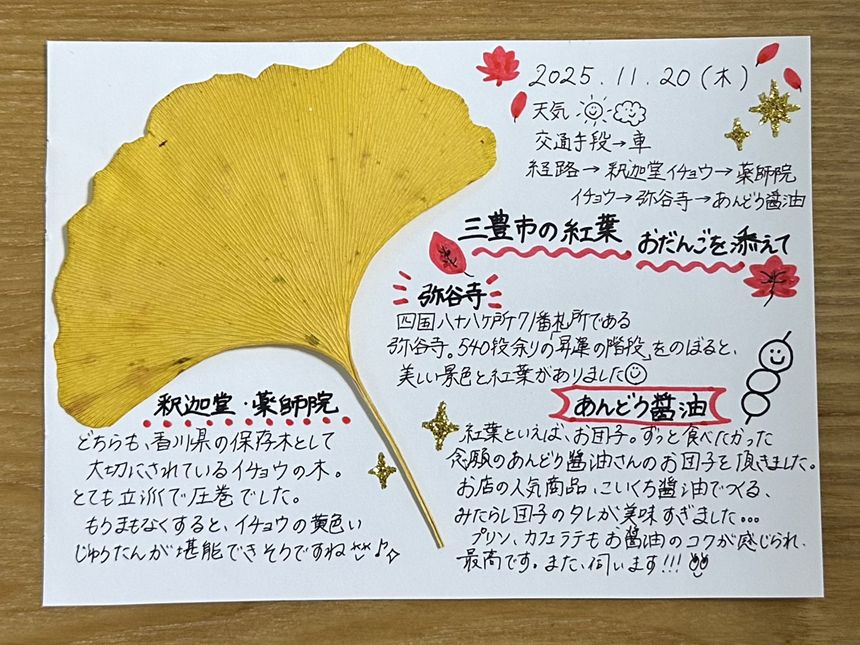 2025.11.20(木)
天気
交通手段→車
経路→釈迦堂イチョウ→薬師院
イチョウ→弥谷寺→あんどう醤油
三豊市の紅葉 おだんごを添えて
弥谷寺
四国八十八ヶ所71番札所である
弥谷寺。540段余りの「昇運の階段」をのぼると、
美しい景色と紅葉がありました
釈迦堂・薬師院
どちらも、香川県の保存木として
大切にされているイチョウの木。
とても立派で圧巻でした。
もうまもなくすると、イチョウの黄色い
じゅうたんが堪能できそうですね♪
あんどう醤油
紅葉といえば、お団子。ずっと食べたかった
念願のあんどう醤油さんのお団子を頂きました。
お店の人気商品、こいくち醤油でつくる、
みたらし団子のタレが美味すぎました...
プリン、カフェラテもお醤油のコクが感じられ、
最高です。また、伺います!!!